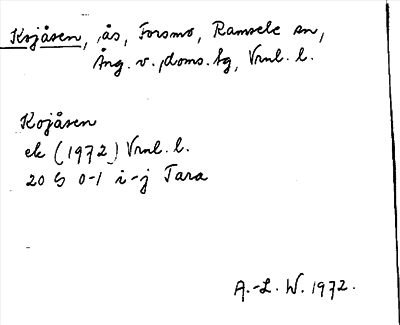 Kojåsen, ås, Forsmo, Ramsele sn,
Ång. v. doms. tg, Vrnl. l.
Kojåsen
ek (1972) Vrnl. l.
20 G 0-1 i-j Tara
A.-L. W. 1972.